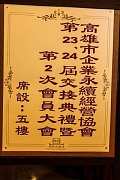 高雄市企業永續經營協會
第23、24屆交接典禮暨
第2次會員大會
席設：五樓